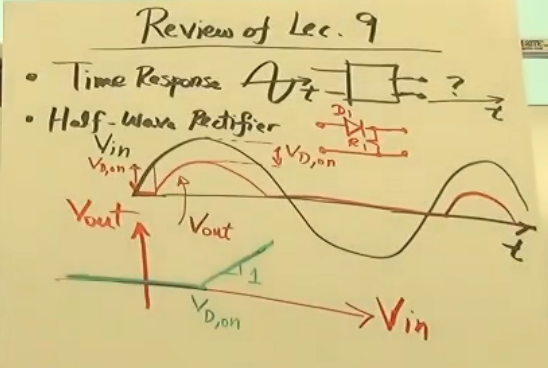 Review of Lec. 9
• Time Response t ? t
• Half-Wave Rectifier
D1
R1
Vin
VD,on
VD,on
Vout
t
Vout
1
VD,on
Vin